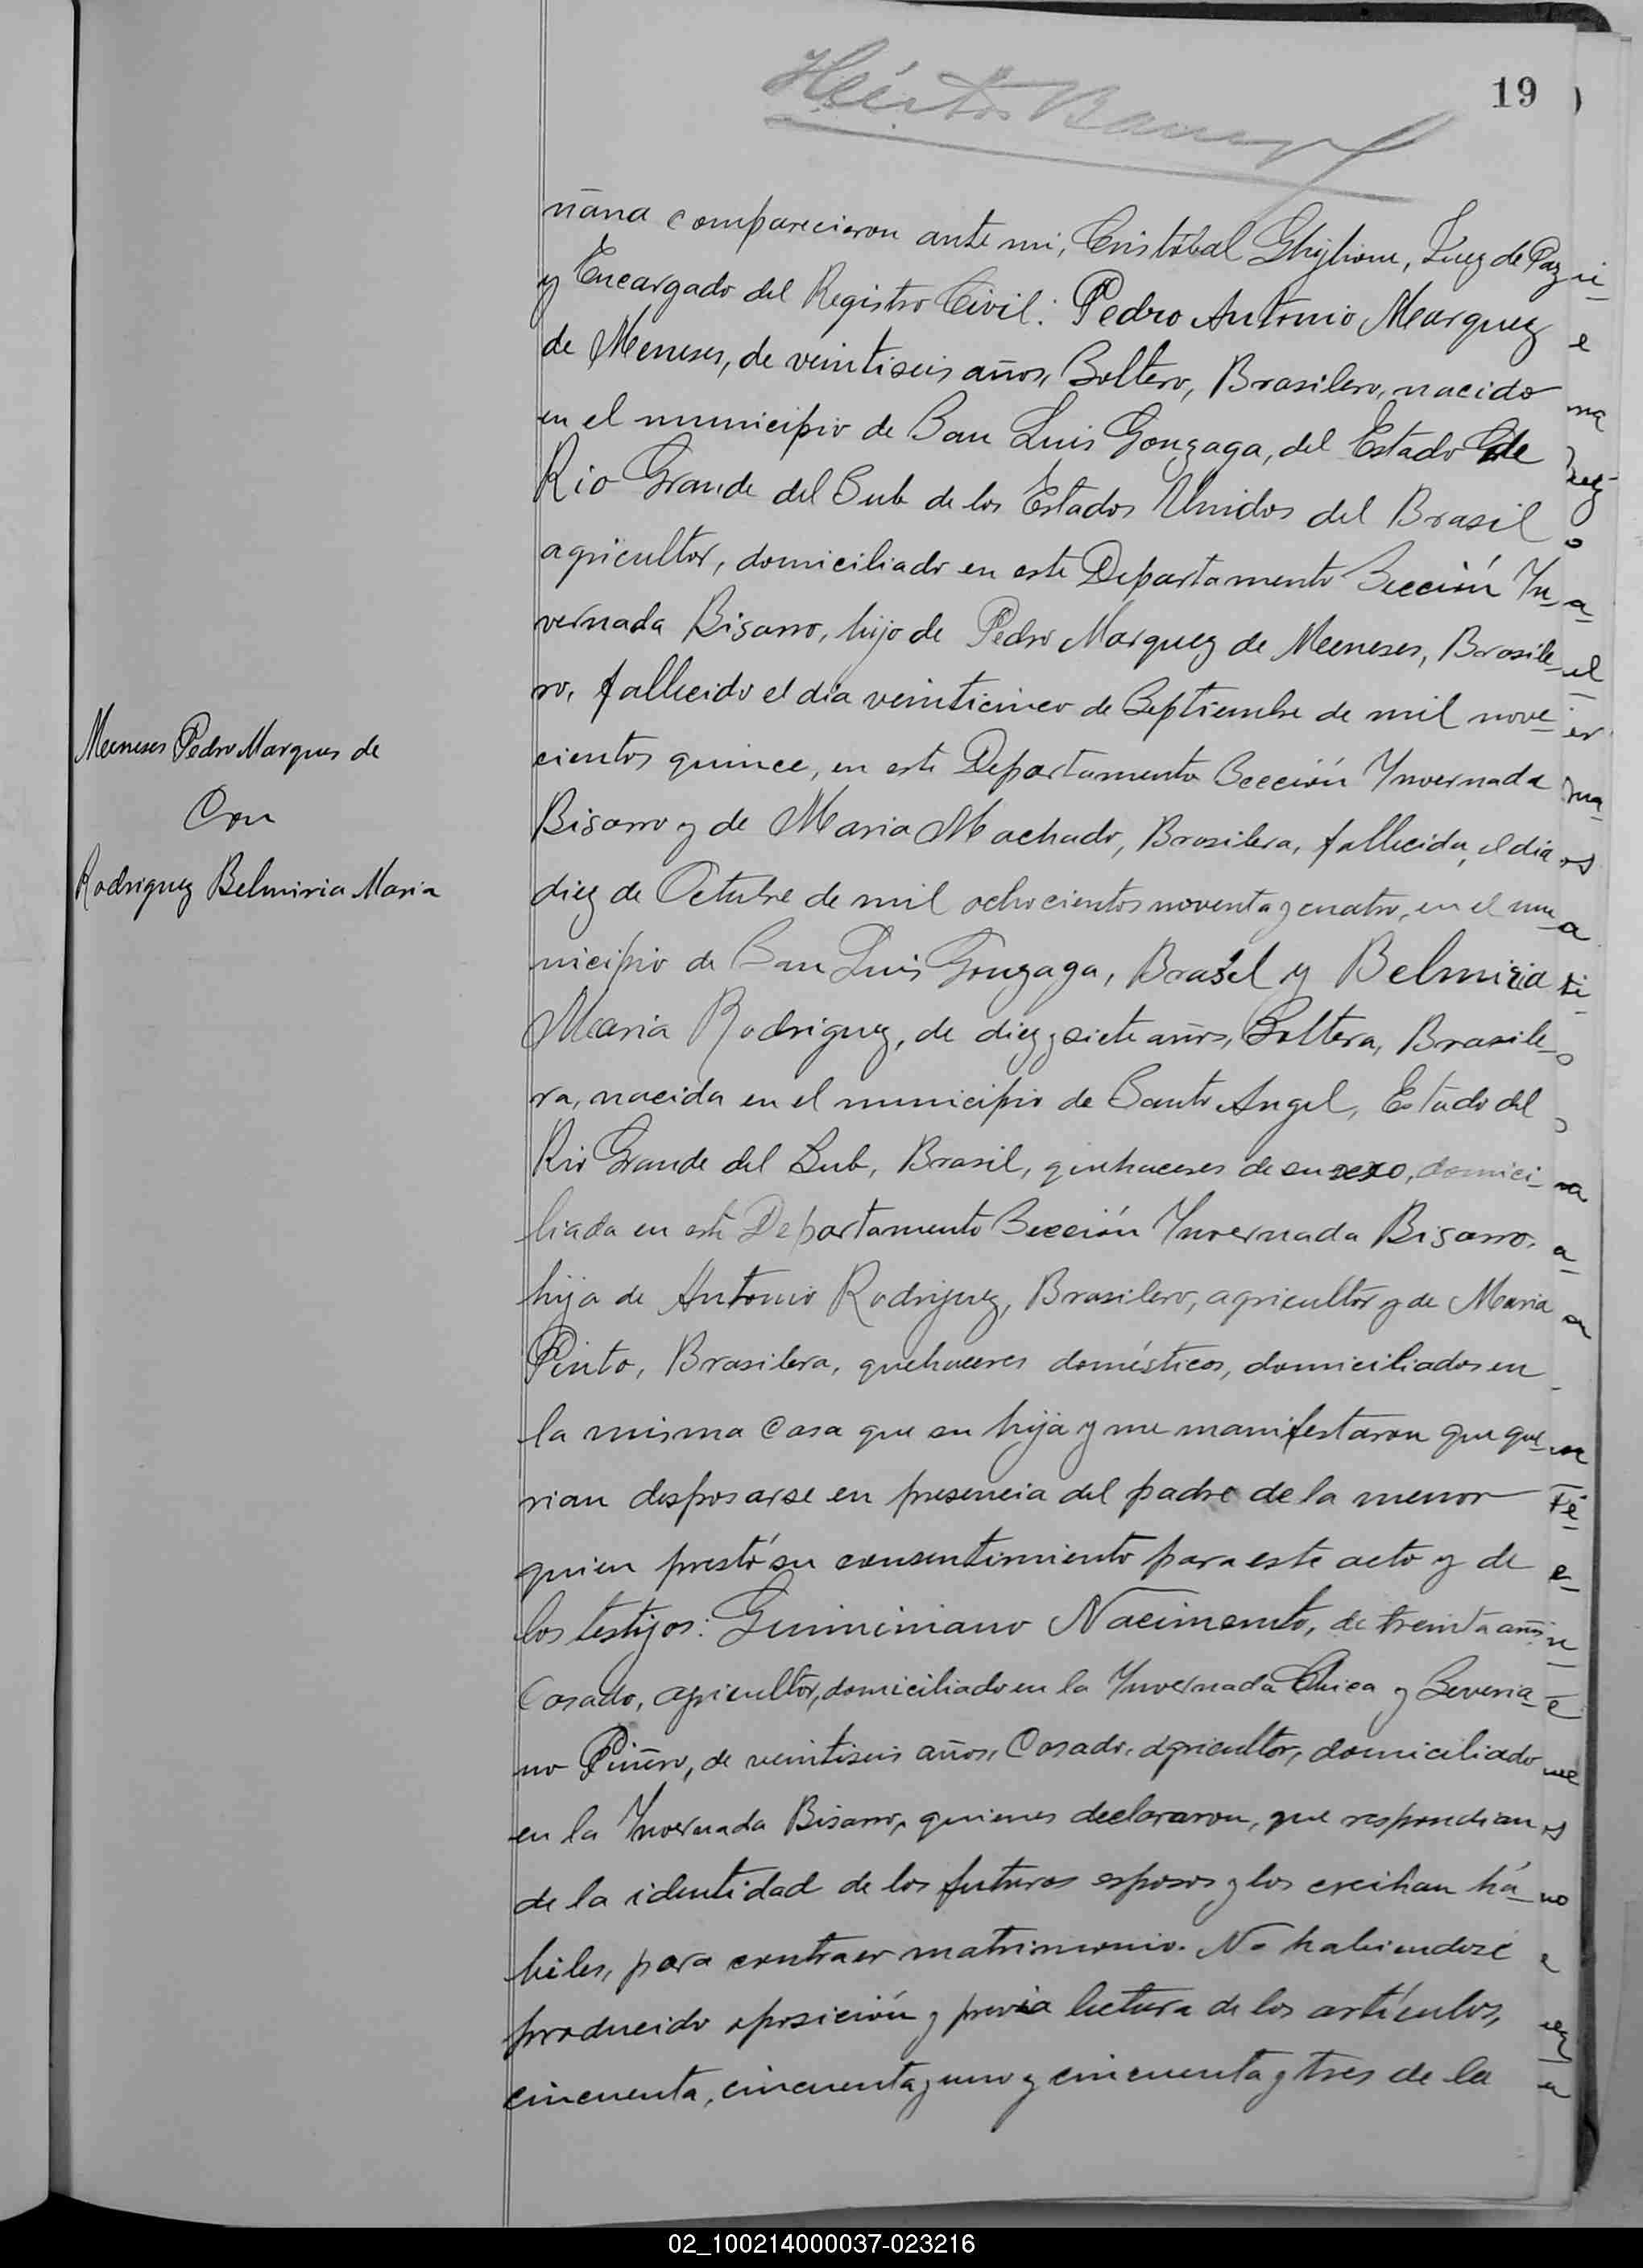 19
Héctor
ñana comparecieron ante mi, Cristóbal Ghiglione, Juez de Paz
y Encargado del Registro Civil: Pedro Antonio Marquez
de Meneses, de veintiseis años, Soltero, Brasilero, nacido
en el municipio de San Luis Gonzaga, del Estado de
Rio Grande del Sub de los Estados Unidos del Brasil
agricultor, domiciliado en este Departamento Sección Yn-
vernada Bisarro, hijo de Pedro Marquez de Meneses, Brasile-
ro, fallecido el dia veinticinco de Septiembre de mil nove-
cientos quince, en este Departamento Sección Ynvernada
Bisarro y de Maria Machado, Brasilera, fallecida, el dia
diez de Octubre de mil ochocientos noventa y cuatro, en el mu-
nicipio de San Luis Gonzaga, Brasil y Belmiria
Maria Rodriguez, de diez y siete años, Soltera, Brasile-
ra, nacida en el municipio de Santo Angel, Estado del
Rio Grande del Sub, Brasil, quehaceres de su sexo, domici-
liada en este Departamento Sección Ynvernada Bisarro,
hija de Antonio Rodriguez, Brasilero, agricultor y de Maria
Pinto, Brasilera, quehaceres domésticos, domiciliados en
la misma Casa que su hija y me manifestaron que que-
rian desposarse en presencia del padre de la menor
quien prestó su consentimiento para este acto y de
los testigos: Giminiano Nacimento, de treinta años
Casado, agricultor, domiciliado en la Ynvernada Chica y Severia-
no Piñero, de veintiseis años, Casado, agricultor, domiciliado
en la Ynvernada Bisarro, quienes declararon, que respondian
de la identidad de los futuros esposos y los creihan há-
biles, para contraer matrimonio. No habiendose
producido oposición y previa lectura de los artículos,
cincuenta, cincuenta y uno y cincuenta y tres de la
Meneses Pedro Marques de
Con
Rodriguez Belmiria Maria
02_100214000037-023216